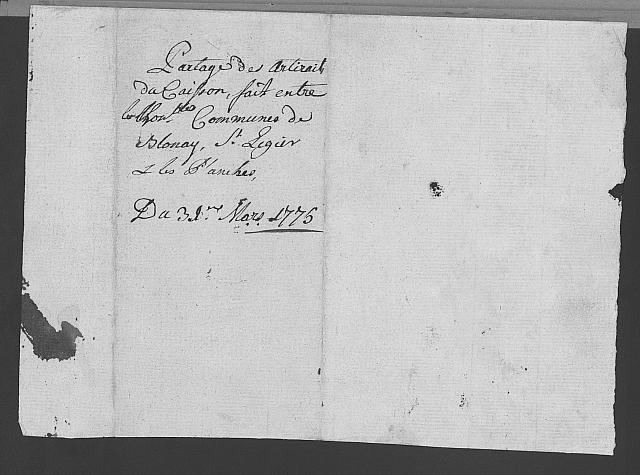 Partage des Artirails
du Caisson, fait entre
les hon.bles Communes de
Blonay, St. Legier
& les Planches,
Du 31me Mars 1775